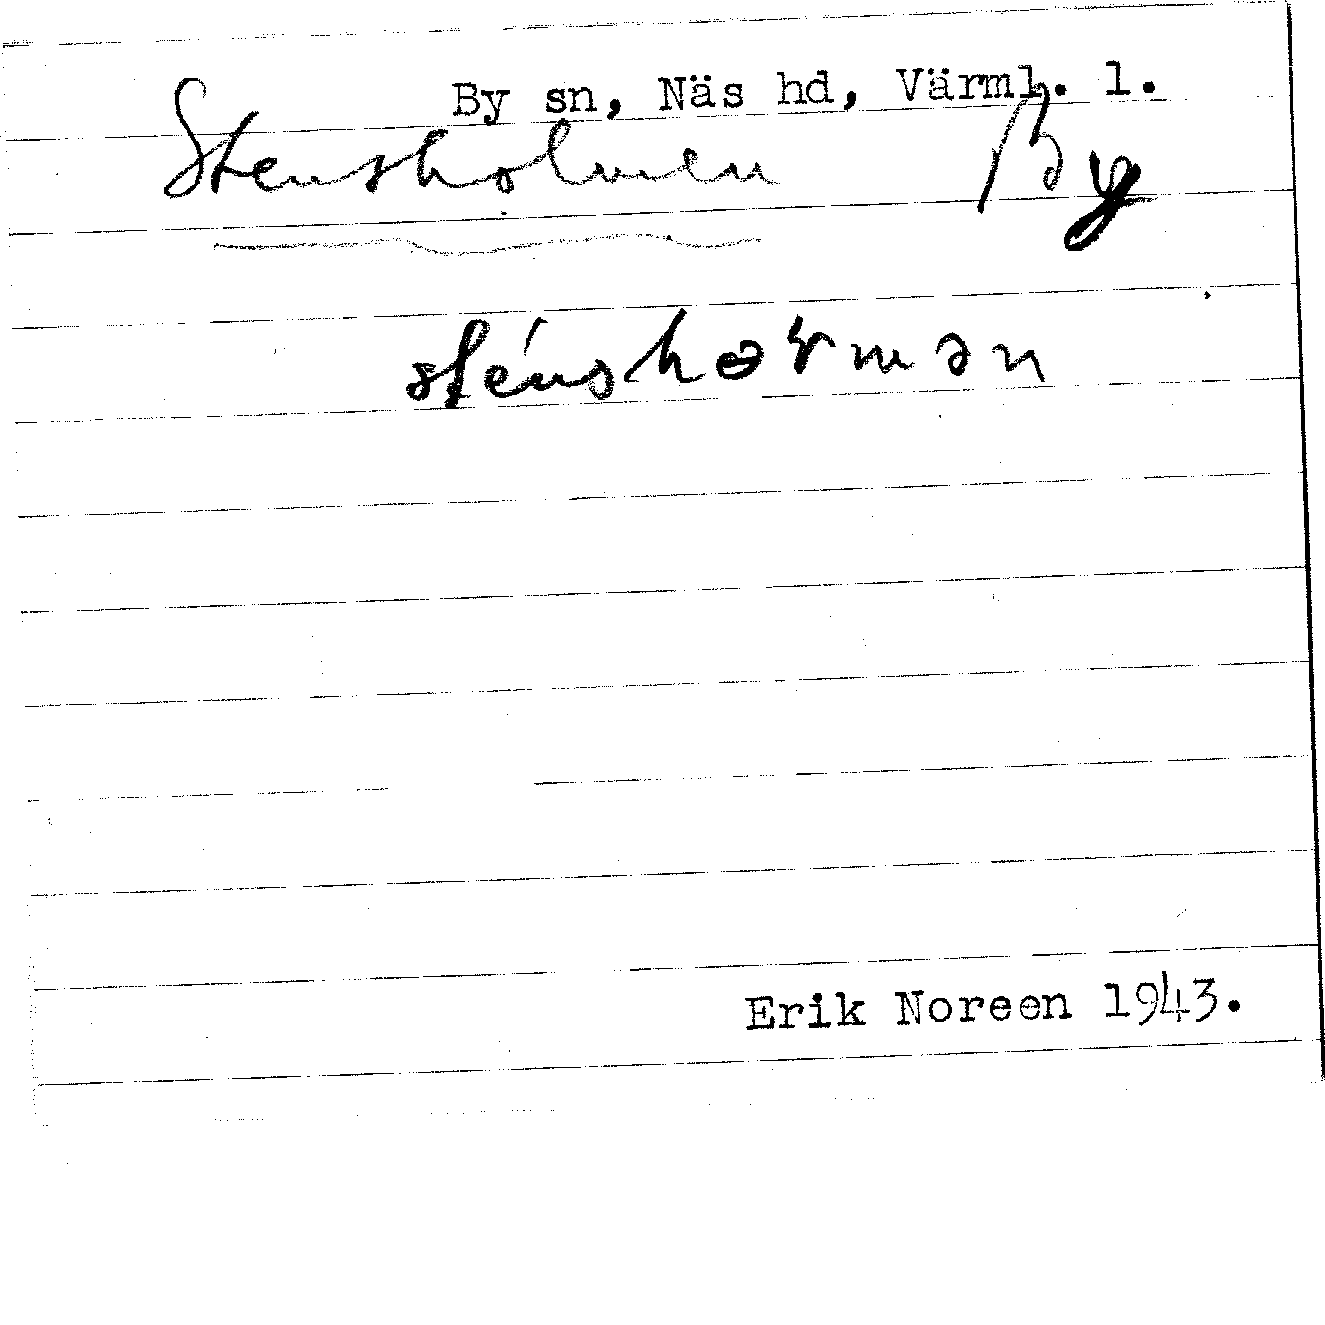 By sn, Näs hd, Värml. l.
Stensholmen By
sténshɵrmən
Erik Noreen 1943.